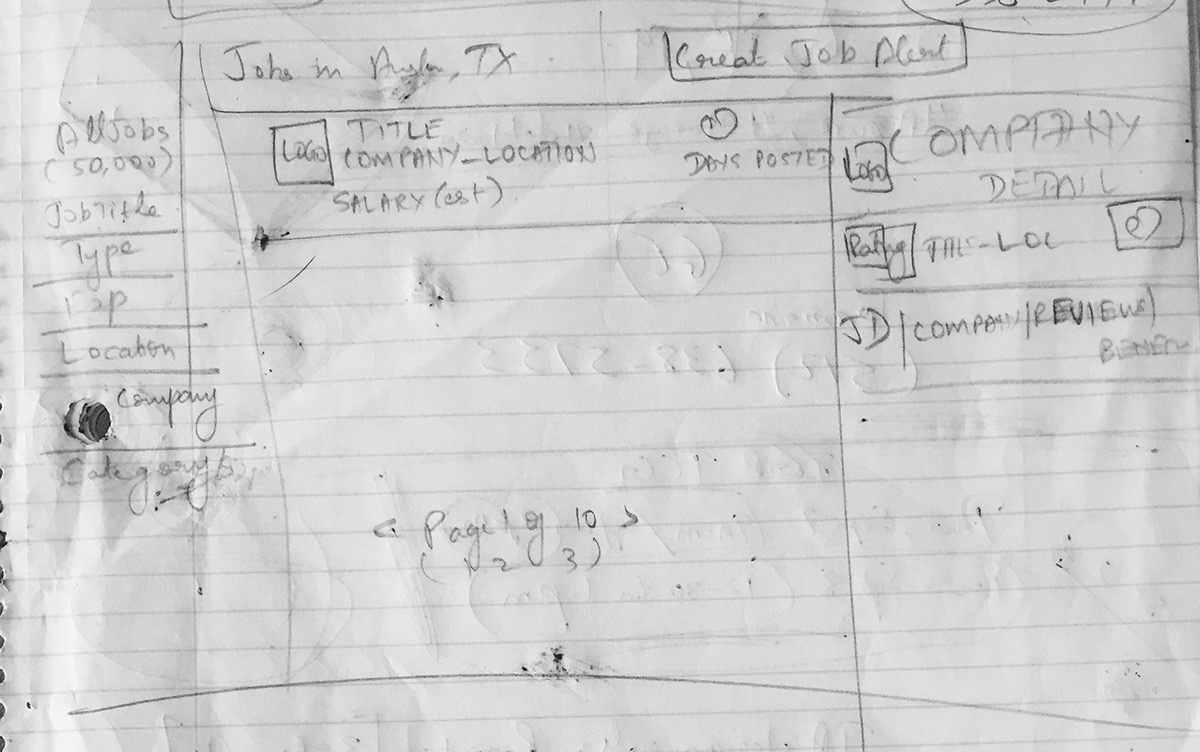 Jobs in Austin, TX
Creat Job Alert
All Jobs
(50,000)
Job Title
Type
Exp
Location
Company
Category
LOGO
TITLE
COMPANY - LOCATION
SALARY (est)
DAYS POSTED
LOGO
COMPTANY
DETAIL
Rating
TITLE - LOC
JD/COMPAN/REVIEWS/
BENEFI
< Page 1 of 10 >
(1 2 3)